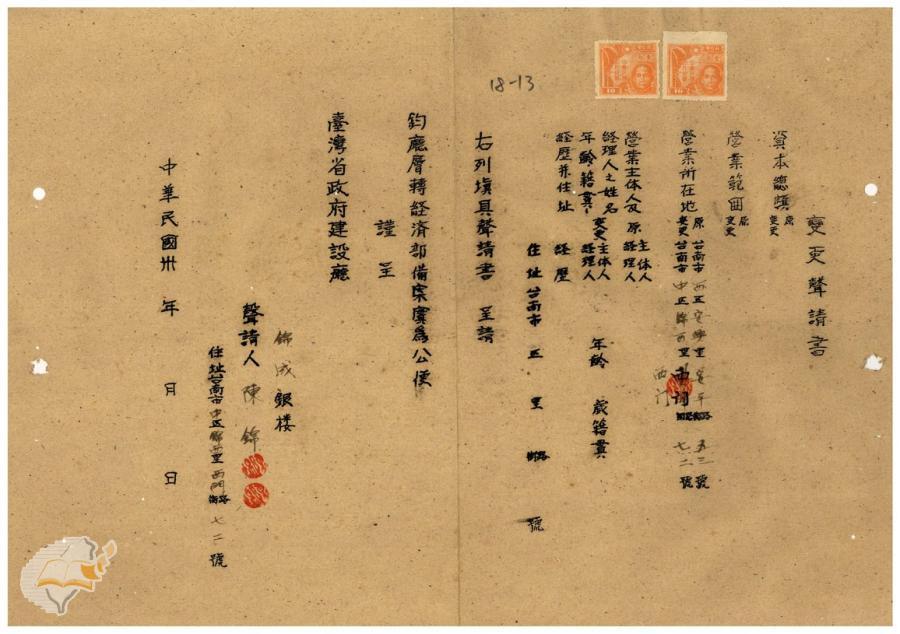 變更聲請書
資本總額 原
變更
營業範圍 原
變更
營業所在地 原 台南市 西區 里 五三號
變更 台南市 中區 里 西門 街路 七二號
營業主体人及 原 主体人
經理人
經理人之姓名
年齡籍貫 變更 主体人
經理人 年齡 歲籍貫
經歷并住址 經歷
住址 台南市 區 里 街路 號
右列填具聲請書 呈請
鈞廳層轉経済部備案實為公便
謹呈
臺灣省政府建設廳
錦成銀楼
聲請人 陳錦
住址台南市中區 里西門街路七二號
中華民國卅 年 月 日
18-13
10
10